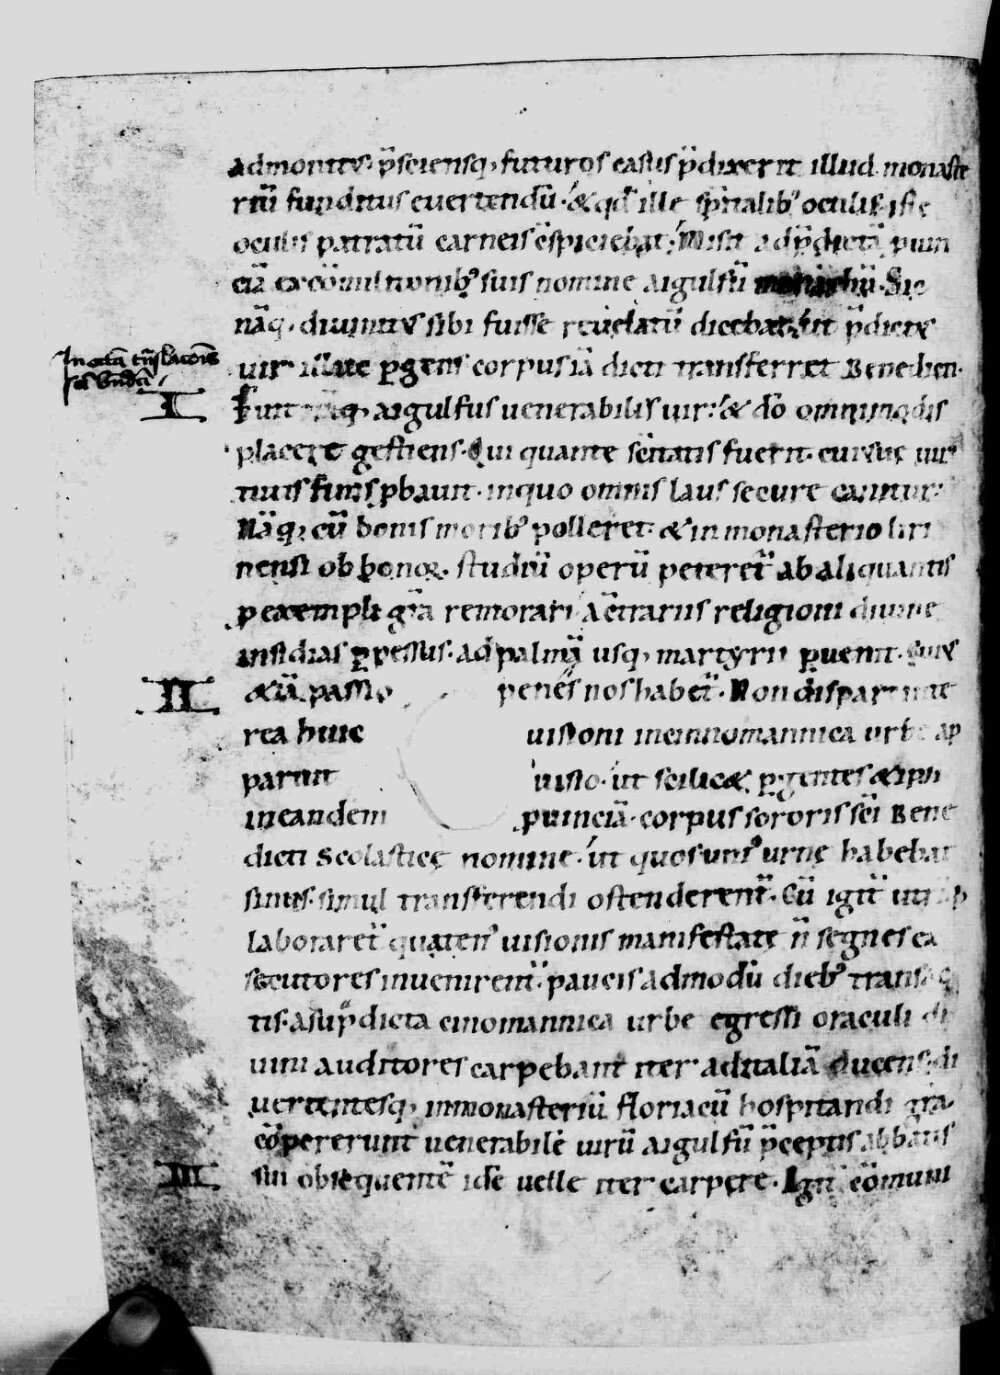 admonitus. p̄sciensq; futuros casus p̄dixerit illud monaste
riū funditus euertendū. & qđ ille spiritalib; oculis. iste
oculis patratū carneis c̄spiciebat. Misit ad p̄dictā ꝓuin
ciā ex cōmilitonib; suis nomine aigulfū monachū. Sic
nāq; diuinitus sibi fuisse reuelatū dicebat. ut p̄dictus
uir illuc ꝑgens corpus iā dicti transferret Benedicti.
In octā trāslacionis
sci Bndcti
I
Fuit aigulfus uenerabilis uir. & dō omnimodis
placere gestiens. Qui quante scītatis fuerit. cursus uir
tutis finis ꝓbauit. in quo omnis laus secure canitur.
Nāq; cū bonis morib; polleret. & in monasterio liri
nensi ob bonoꝝ studiū operū peteret̄ ab aliquantis
ꝑ exempli grā remorari. a c̄trariis religioni diuine
insidias ꝑpessus. ad palmā usq; martyrii ꝑuenit. cuius
II
&iā passio penes nos habet̄. Non dispar inte
rea huic uisioni in cinnomannica urbe ap
paruit uisio. ut scilic& ꝑgentes & ipsi
in eandem ꝓuinciā. corpus sororis sc̄i Bene
dicti Scolasticę nomine. ut quos unius urnę habebat
sinus. simul transferendi ostenderent̄. Cū igit̄
laboraret̄ quaten; uisionis manifestate n̄ segnes ex
secutores inuenirent̄. paucis admodū dieb; transac
tis. a sup̄dicta cinomannica urbe egressi oraculi di
uini auditores carpebant iter ad italiā ducens. di
uertentesq; in monasteriū floriacū hospitandi grā.
cōpererunt uenerabilē uirū aigulfū p̄ceptis abbatis
III
sui obsequentē idē uelle iter carpere. Igit̄ cōmuni